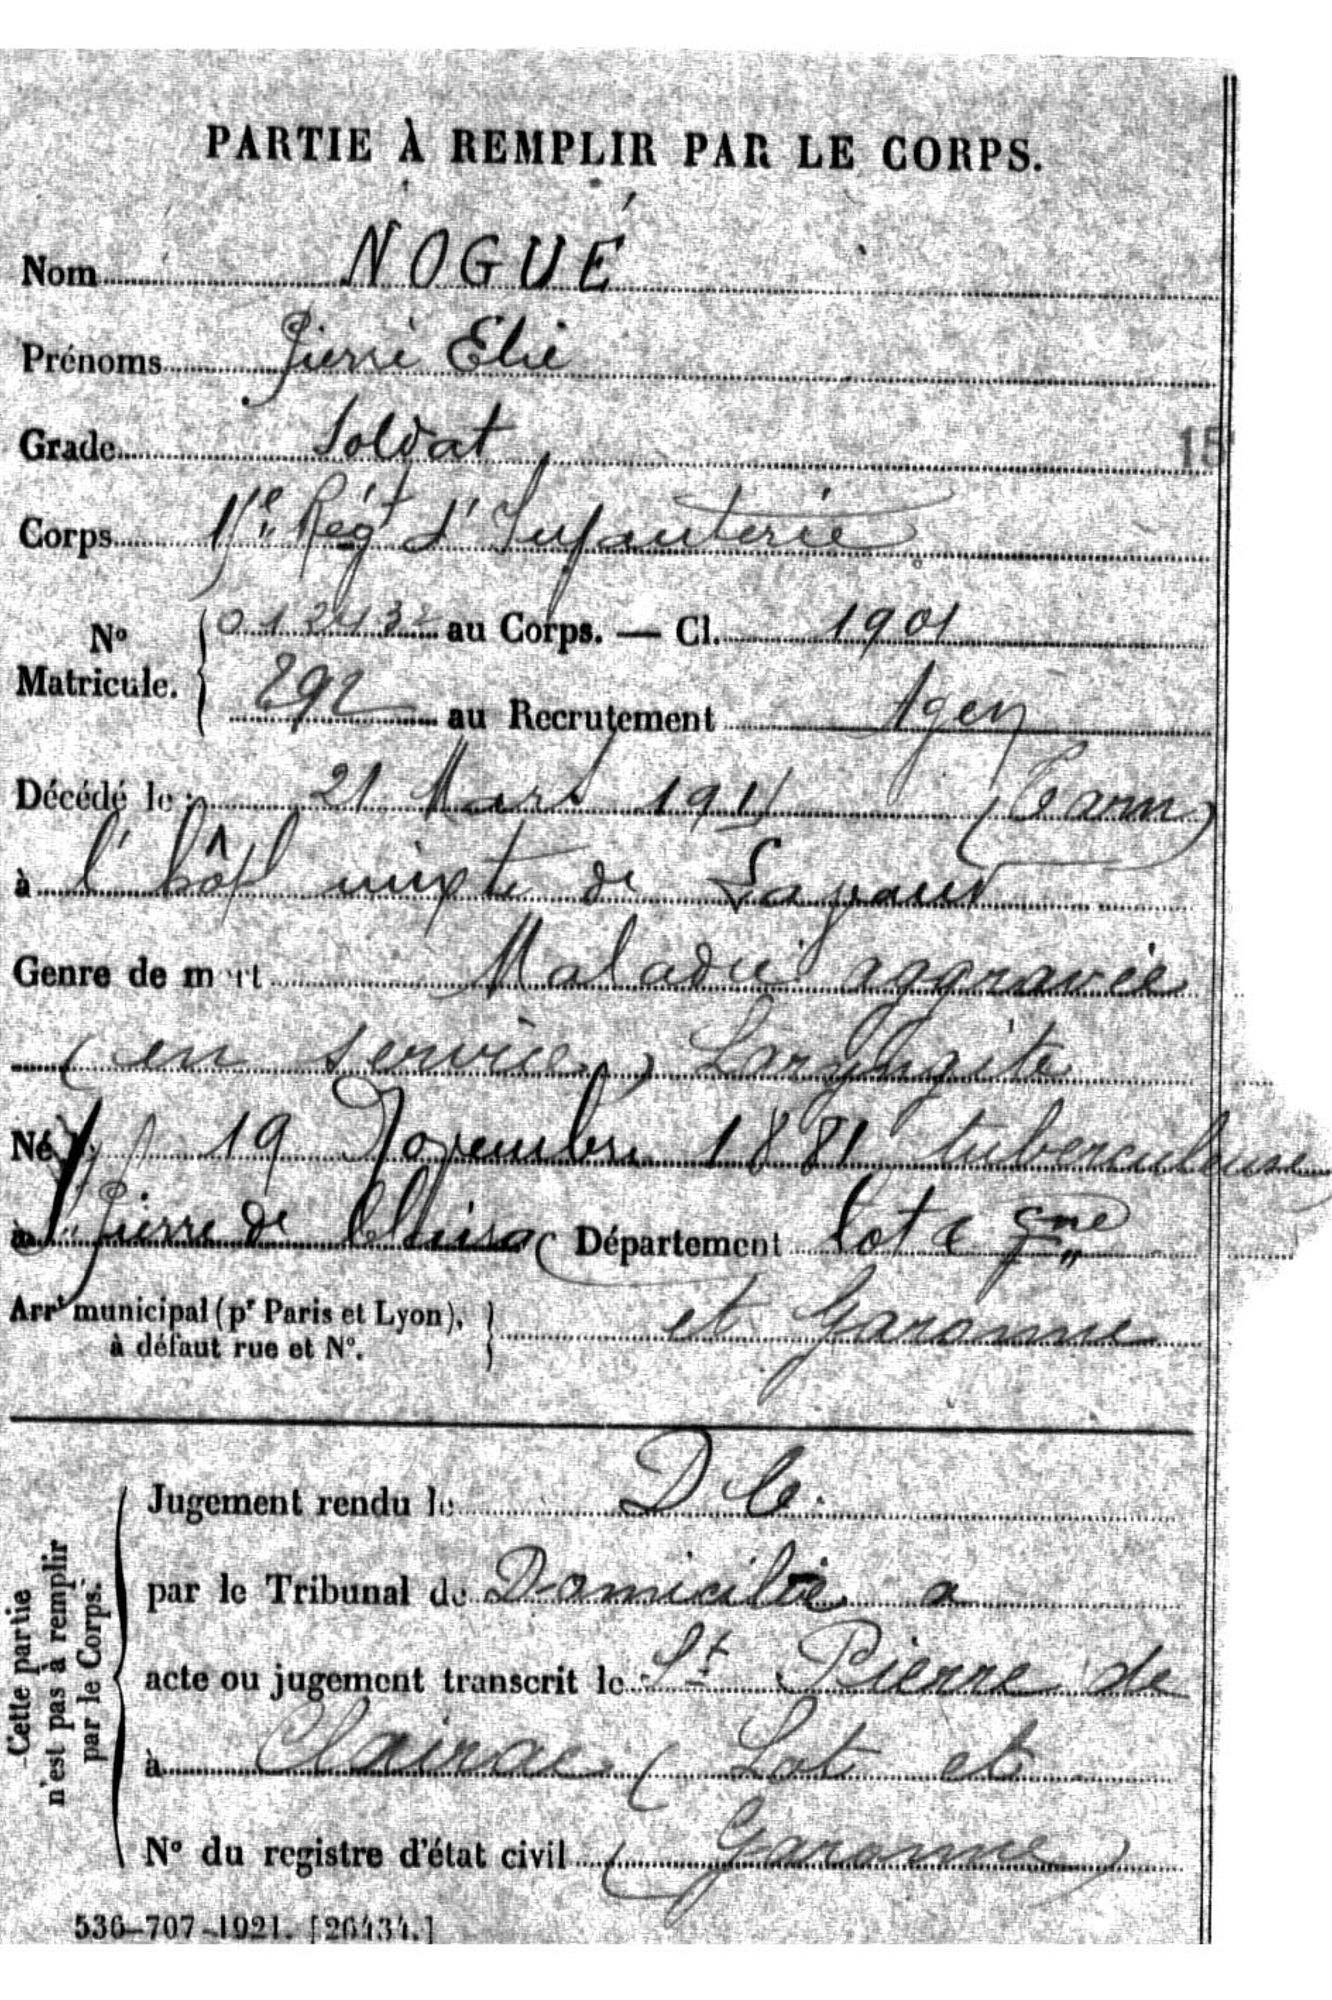 PARTIE À REMPLIR PAR LE CORPS.
Nom NOGUÉ
Prénoms Pierre Elie
Grade Soldat
15
Corps Régt d'Infanterie
No Matricule. { au Corps. — Cl. 1901
292 au Recrutement Agen
Décédé le 21 Mars 191 (Tarn)
à l'hôpl mixte de
Genre de mort Maladie aggravée
(en service) Laryngite
Né le 19 Novembre 1881 tuberculeuse
à St Pierre de Département Lot & Gne
Arrt municipal (pr Paris et Lyon), à défaut rue et No. } et Garonne
Cette partie n'est pas à remplir par le Corps.
Jugement rendu le D le
par le Tribunal de Domicilié a
acte ou jugement transcrit le St Pierre de
à Clairac (Lot et
No du registre d'état civil (Garonne)
536-707-1921. [26434.]